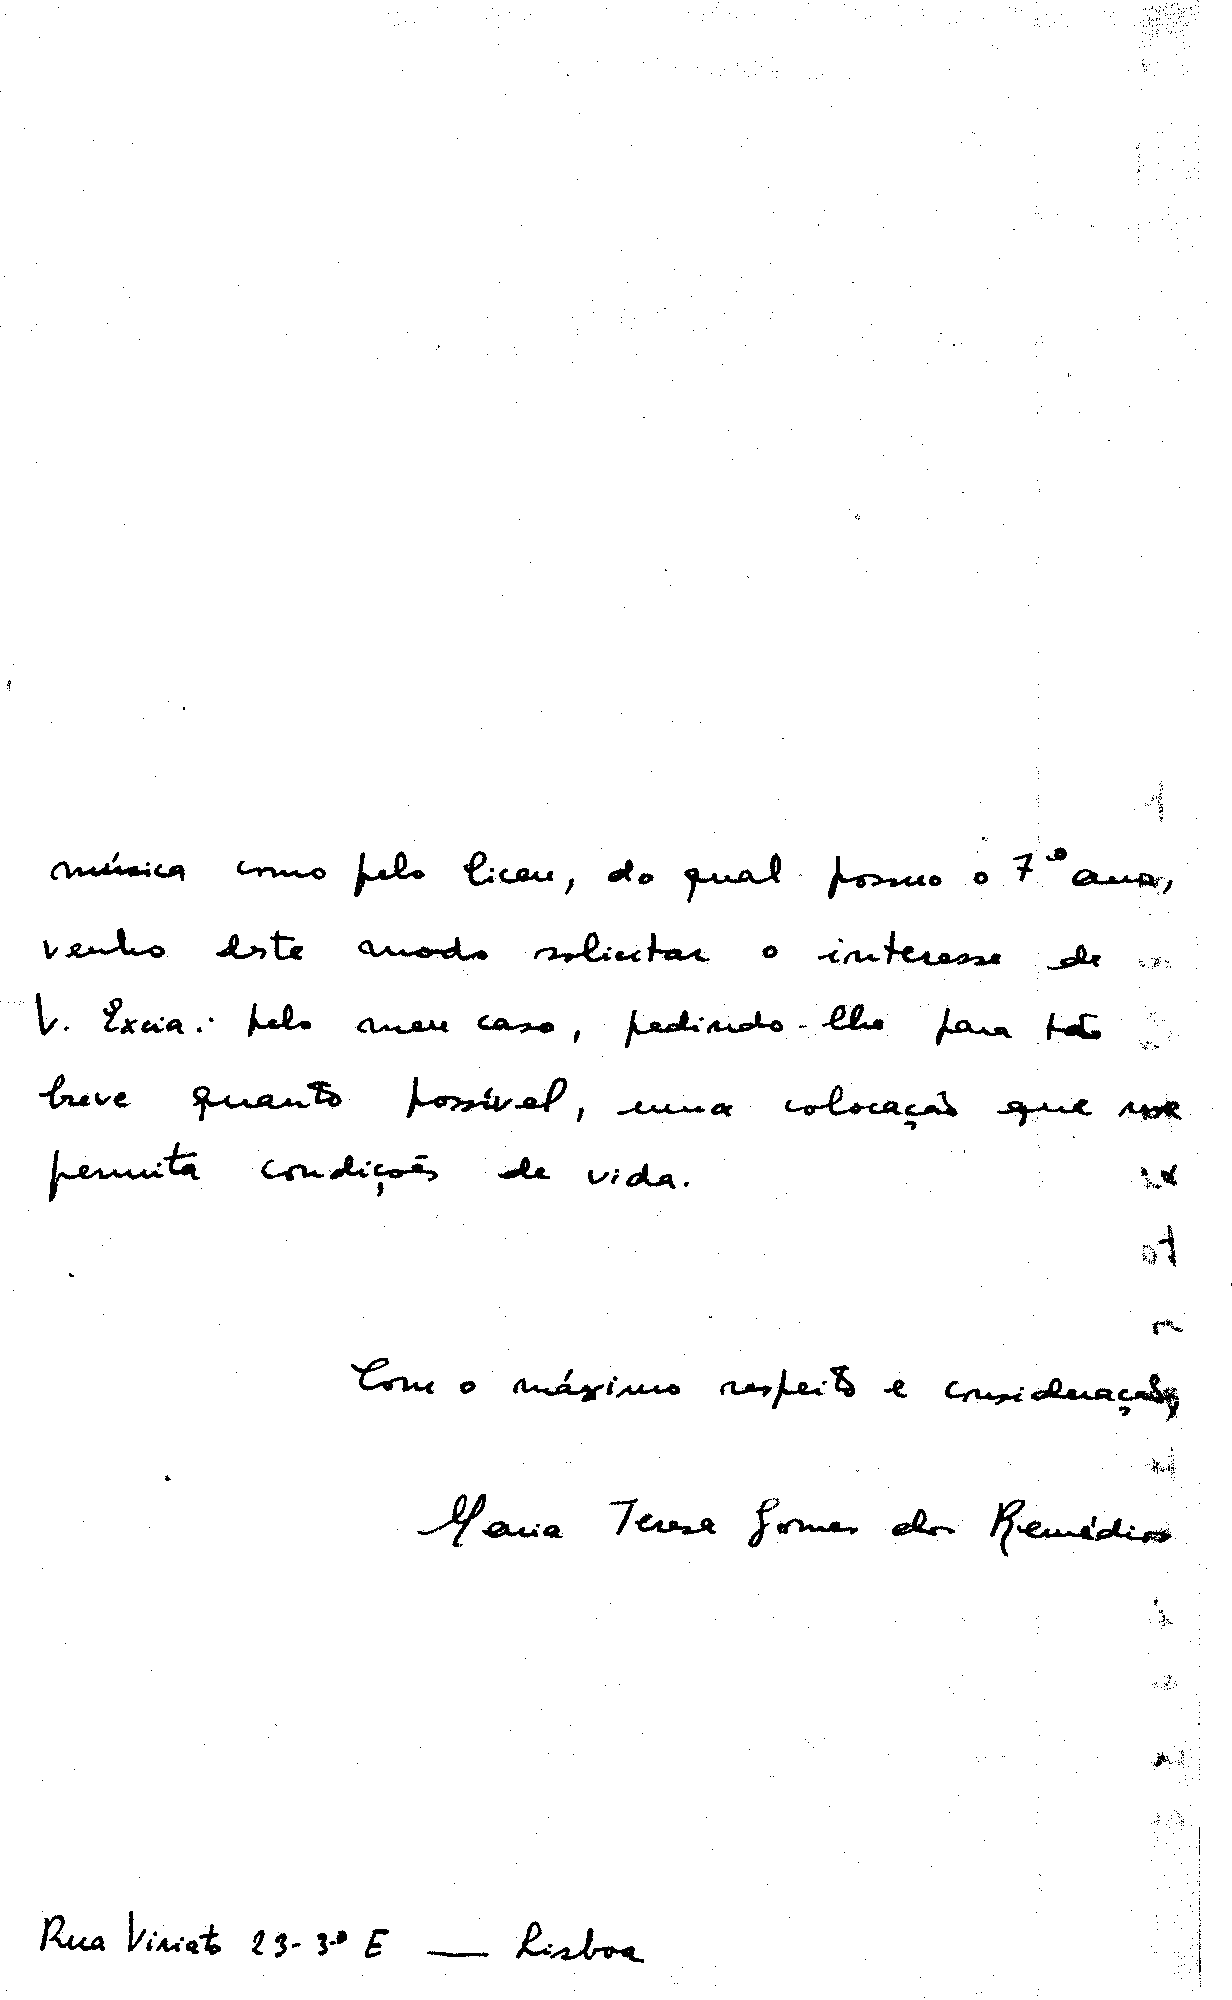 música como pelo liceu, do qual possuo o 7º ano,
venho deste modo solicitar o interesse de
V. Excia. pelo meu caso, pedindo-lhe para tão
breve quanto possível, uma colocação que me
permita condições de vida.
Com o máximo respeito e consideração,
Maria Teresa Gomes dos Remédios
Rua Viriato 23-3º E — Lisboa